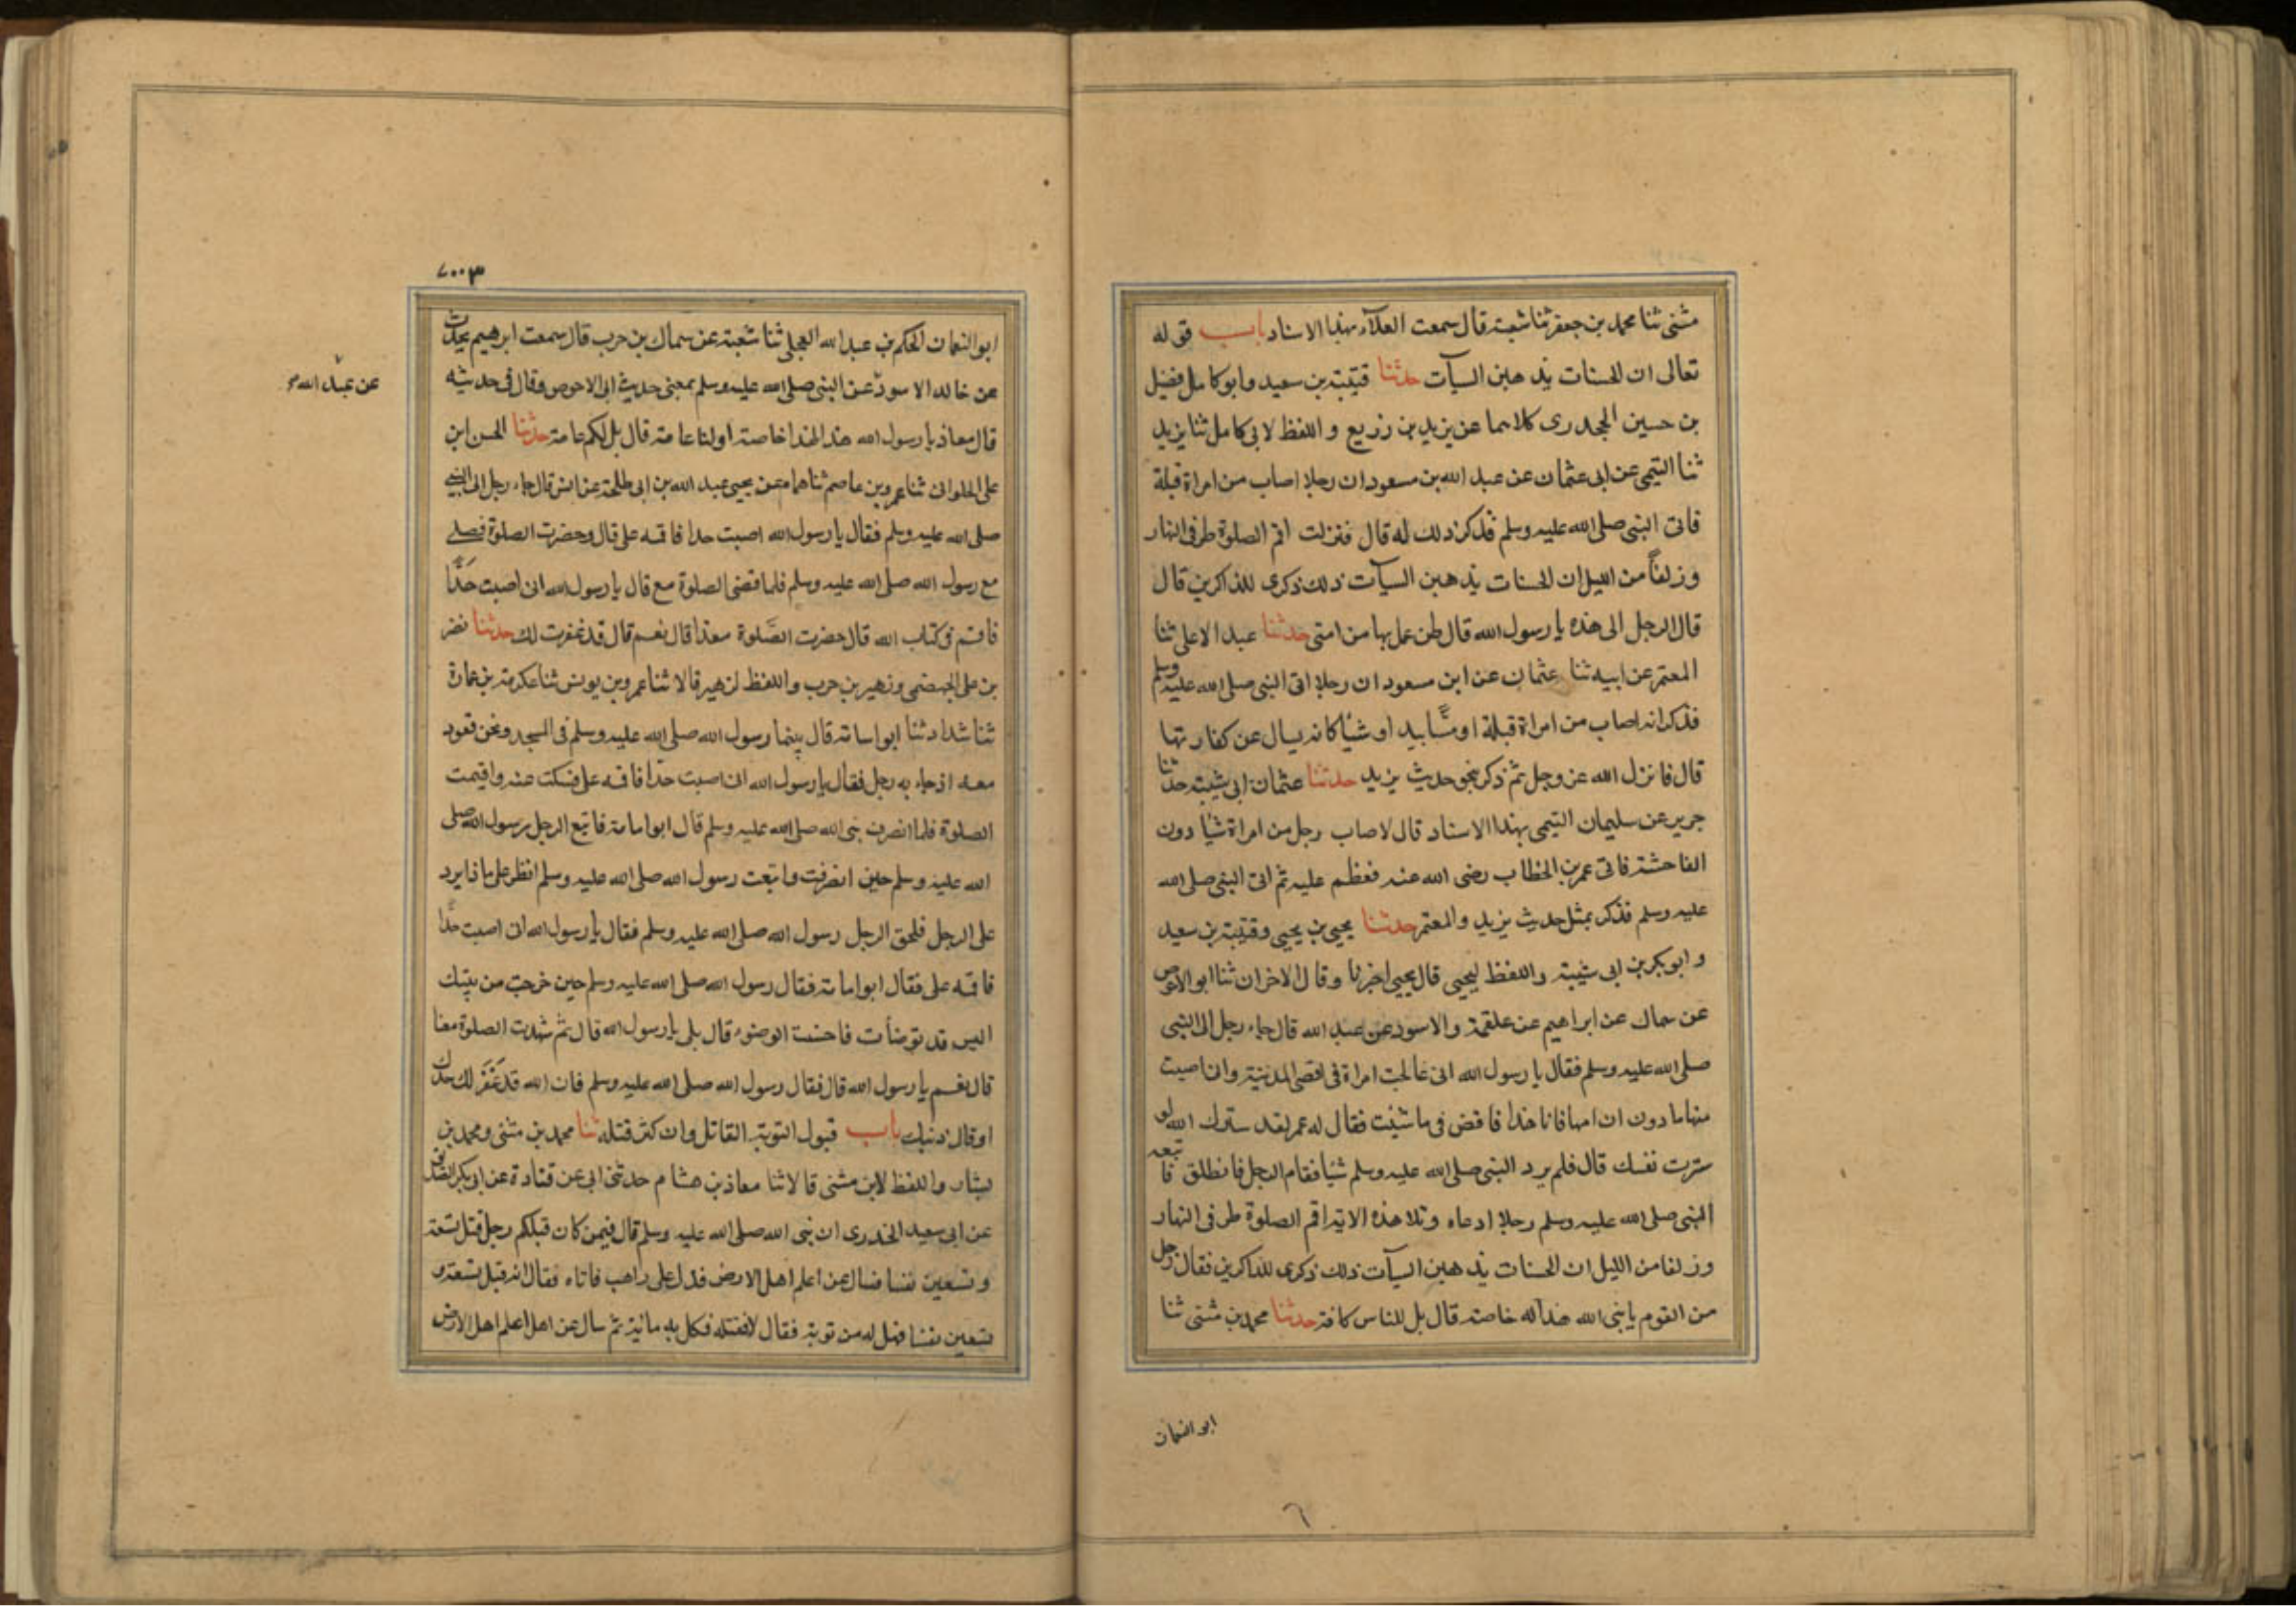 مثنى ثنا محمد بن جعفر ثنا شعبة قال سمعت العلآء بهذا الاسناد باب قوله
تعالى ان الحسنات يذهبن السيآت حدثنا قتيبة بن سعيد وابو كامل فضيل
بن حسين الجحدرى كلاهما عن يزيد بن زريع واللفظ لابى كامل ثنا يزيد
ثنا التيمى عن ابى عثمان عن عبد الله بن مسعود ان رجلا اصاب من امراة قبلة
فاتى النبى صلى الله عليه وسلم فذكر ذلك له قال فنزلت اقم الصلوة طرفى النهار
وزلفاً من الليل ان الحسنات يذهبن السيآت ذلك ذكرى للذاكرين قال
قال الرجل الى هذه يا رسول الله قال لمن عمل بها من امتى حدثنا عبد الاعلى ثنا
المعتمر عن ابيه ثنا عثمان عن ابن مسعود ان رجلا اتى النبى صلى الله عليه وسلم
فذكر انه اصاب من امراة قبلة او مسّا بيد او شيا كانه يسال عن كفارتها
قال فانزل الله عز وجل ثم ذكر نحو حديث يزيد حدثنا عثمان ابى شيبة حدثنا
جرير عن سليمان التيمى بهذا الاسناد قال لاصاب رجل من امراة شيا دون
الفاحشة فاتى عمر بن الخطاب رضى الله عنه فعظم عليه ثم اتى النبى صلى الله
عليه وسلم فذكر بمثل حديث يزيد والمعتمر حدثنا يحيى بن يحيى وقتيبة بن سعيد
وابو بكر بن ابى شيبة واللفظ ليحيى قال يحيى اخبرنا وقال الاخران ثنا ابو الاحوص
عن سماك عن ابراهيم عن علقمة والاسود عن عبد الله قال جاء رجل الى النبى
صلى الله عليه وسلم فقال يا رسول الله انى عالجت امراة فى اقصى المدينة وانى اصبت
منها ما دون ان امسها فانا هذا فاقض فى ما شئت فقال له عمر لقد سترك الله لو
سترت نفسك قال فلم يرد النبى صلى الله عليه وسلم شيا فقام الرجل فانطلق فاتبعه
النبى صلى الله عليه وسلم رجلا ادعاه وتلا هذه الاية اقم الصلوة طرفى النهار
وزلفا من الليل ان الحسنات يذهبن السيآت ذلك ذكرى للذاكرين فقال رجل
من القوم يا نبى الله هذا له خاصة قال بل للناس كافة حدثنا محمد بن مثنى ثنا
ابو النعمان
٦
٧٠٠٣
ابو النعمان الحكم بن عبد الله العجلى ثنا شعبة عن سماك بن حرب قال سمعت ابرهيم يحدث
عن خالد الاسود عن النبى صلى الله عليه وسلم بمعنى حديث ابى الاحوص وقال فى حديثه
عن عبد الله
قال معاذ يا رسول الله هذا لهذا خاصة او لنا عامة قال بل لكم عامة حدثنا الحسن ابن
على الحلوانى ثنا عمرو بن عاصم ثنا همام عن يحيى عبد الله بن ابى طلحة عن انس قال جاء رجل الى النبى
صلى الله عليه وسلم فقال يا رسول الله اصبت حدا فاقمه على قال وحضرت الصلوة فصلى
مع رسول الله صلى الله عليه وسلم فلما قضى الصلوة مع قال يا رسول الله انى اصبت حدّا
فاقم فى كتاب الله قال حضرت الصّلوة معنا قال نعم قال قد غفرت لك حدثنا نضر
بن على الجهضمى وزهير بن حرب واللفظ لزهير قالا ثنا عمرو بن يونس ثنا عكرمة بن عمارة
ثنا شداد ثنا ابو اسامة قال بينما رسول الله صلى الله عليه وسلم فى المسجد ونحن قعود
معه اذ جاء به رجل فقال يا رسول الله انى اصبت حدّا فاقمه على فسكت عنه واقيمت
الصلوة فلما انصرف نبى الله صلى الله عليه وسلم قال ابو امامة فاتبع الرجل رسول الله صلى
الله عليه وسلم حين انصرفت واتبعت رسول الله صلى الله عليه وسلم انظر على ماذا يرد
على الرجل فلحق الرجل رسول الله صلى الله عليه وسلم فقال يا رسول الله ان اصبت حدّا
فاقمه على فقال ابو امامة فقال رسول الله صلى الله عليه وسلم حين خرجت من بيتك
اليس قد توضأت فاحسنت الوضوء قال بلى يا رسول الله قال ثم شهدت الصلوة معنا
قال نعم يا رسول الله قال فقال رسول الله صلى الله عليه وسلم فان الله قد غَفَرَ لك حدك
او قال ذنبك باب قبول التوبة القاتل وان كثر قتله ثنا محمد بن مثنى ومحمد بن
بشار واللفظ لابن مثنى قالا ثنا معاذ بن هشام حدثنى ابى عن قتادة عن ابى بكر الصديق
عن ابى سعيد الخدرى ان نبى الله صلى الله عليه وسلم قال فيمن كان قبلكم رجل قتل تسعة
وتسعين نفسا فسال عن اعلم اهل الارض فدل على راهب فاتاه فقال انه قتل تسعة و
تسعين نفسا فهل له من توبة فقال لا فقتله فكمل به مائة ثم سال عن اهل اعلم اهل الارض